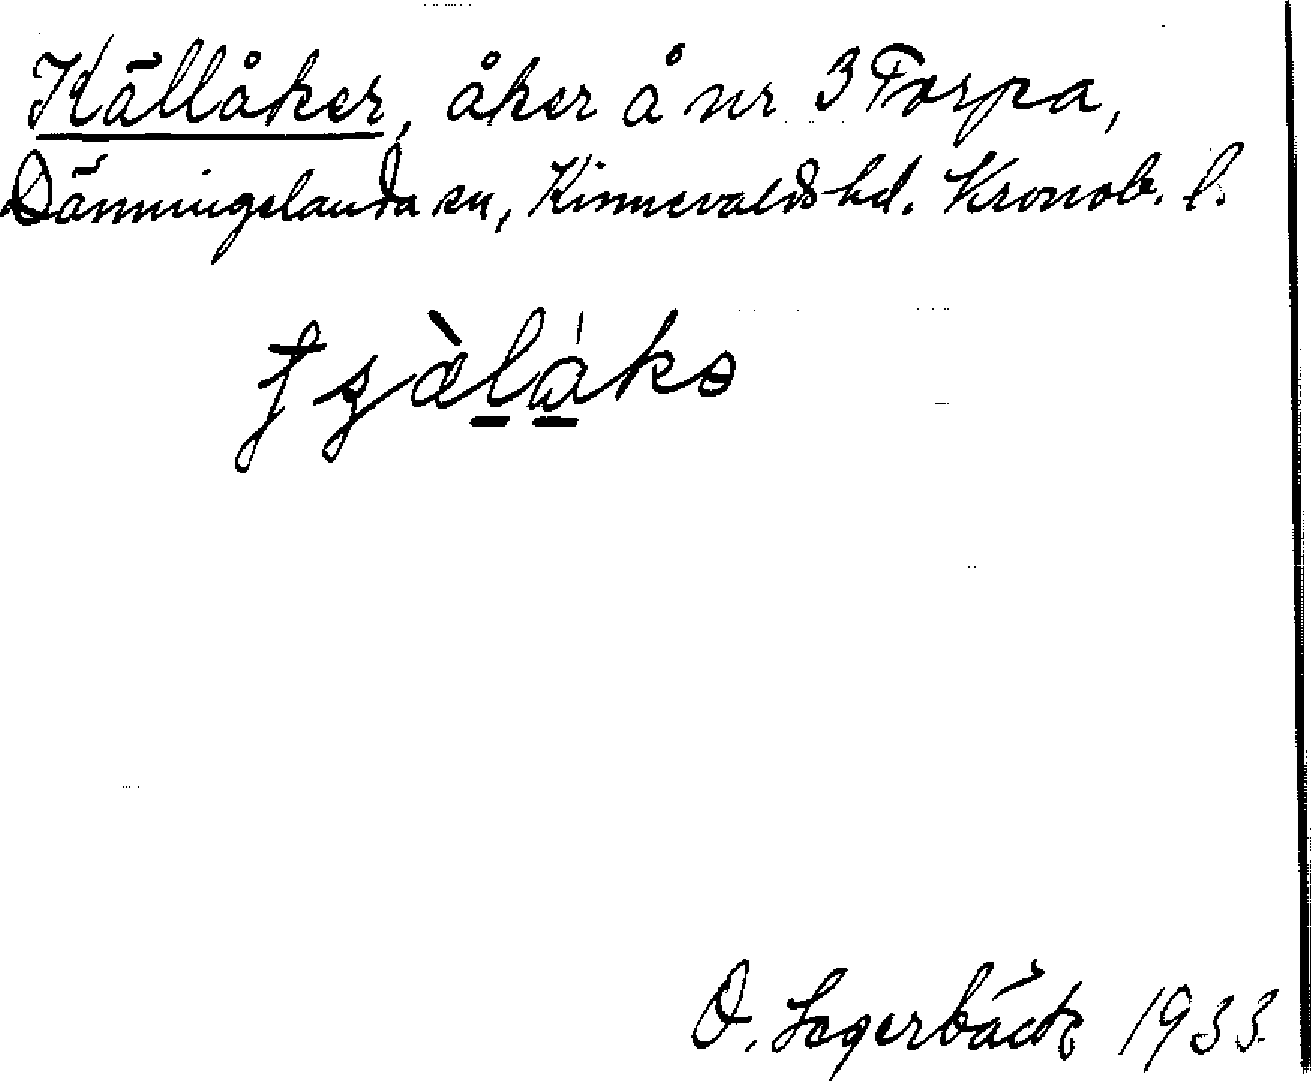 Källåker, åker å nr 3 Torpa,
Dänningelanda sn, Kinnevalds hd. Kronob. l.
O. Segerbäck 1933